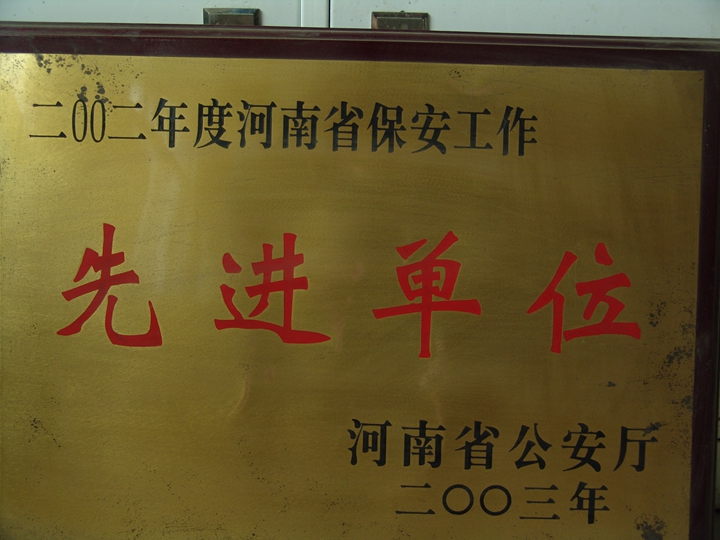 二00二年度河南省保安工作
先进单位
河南省公安厅
二〇〇三年